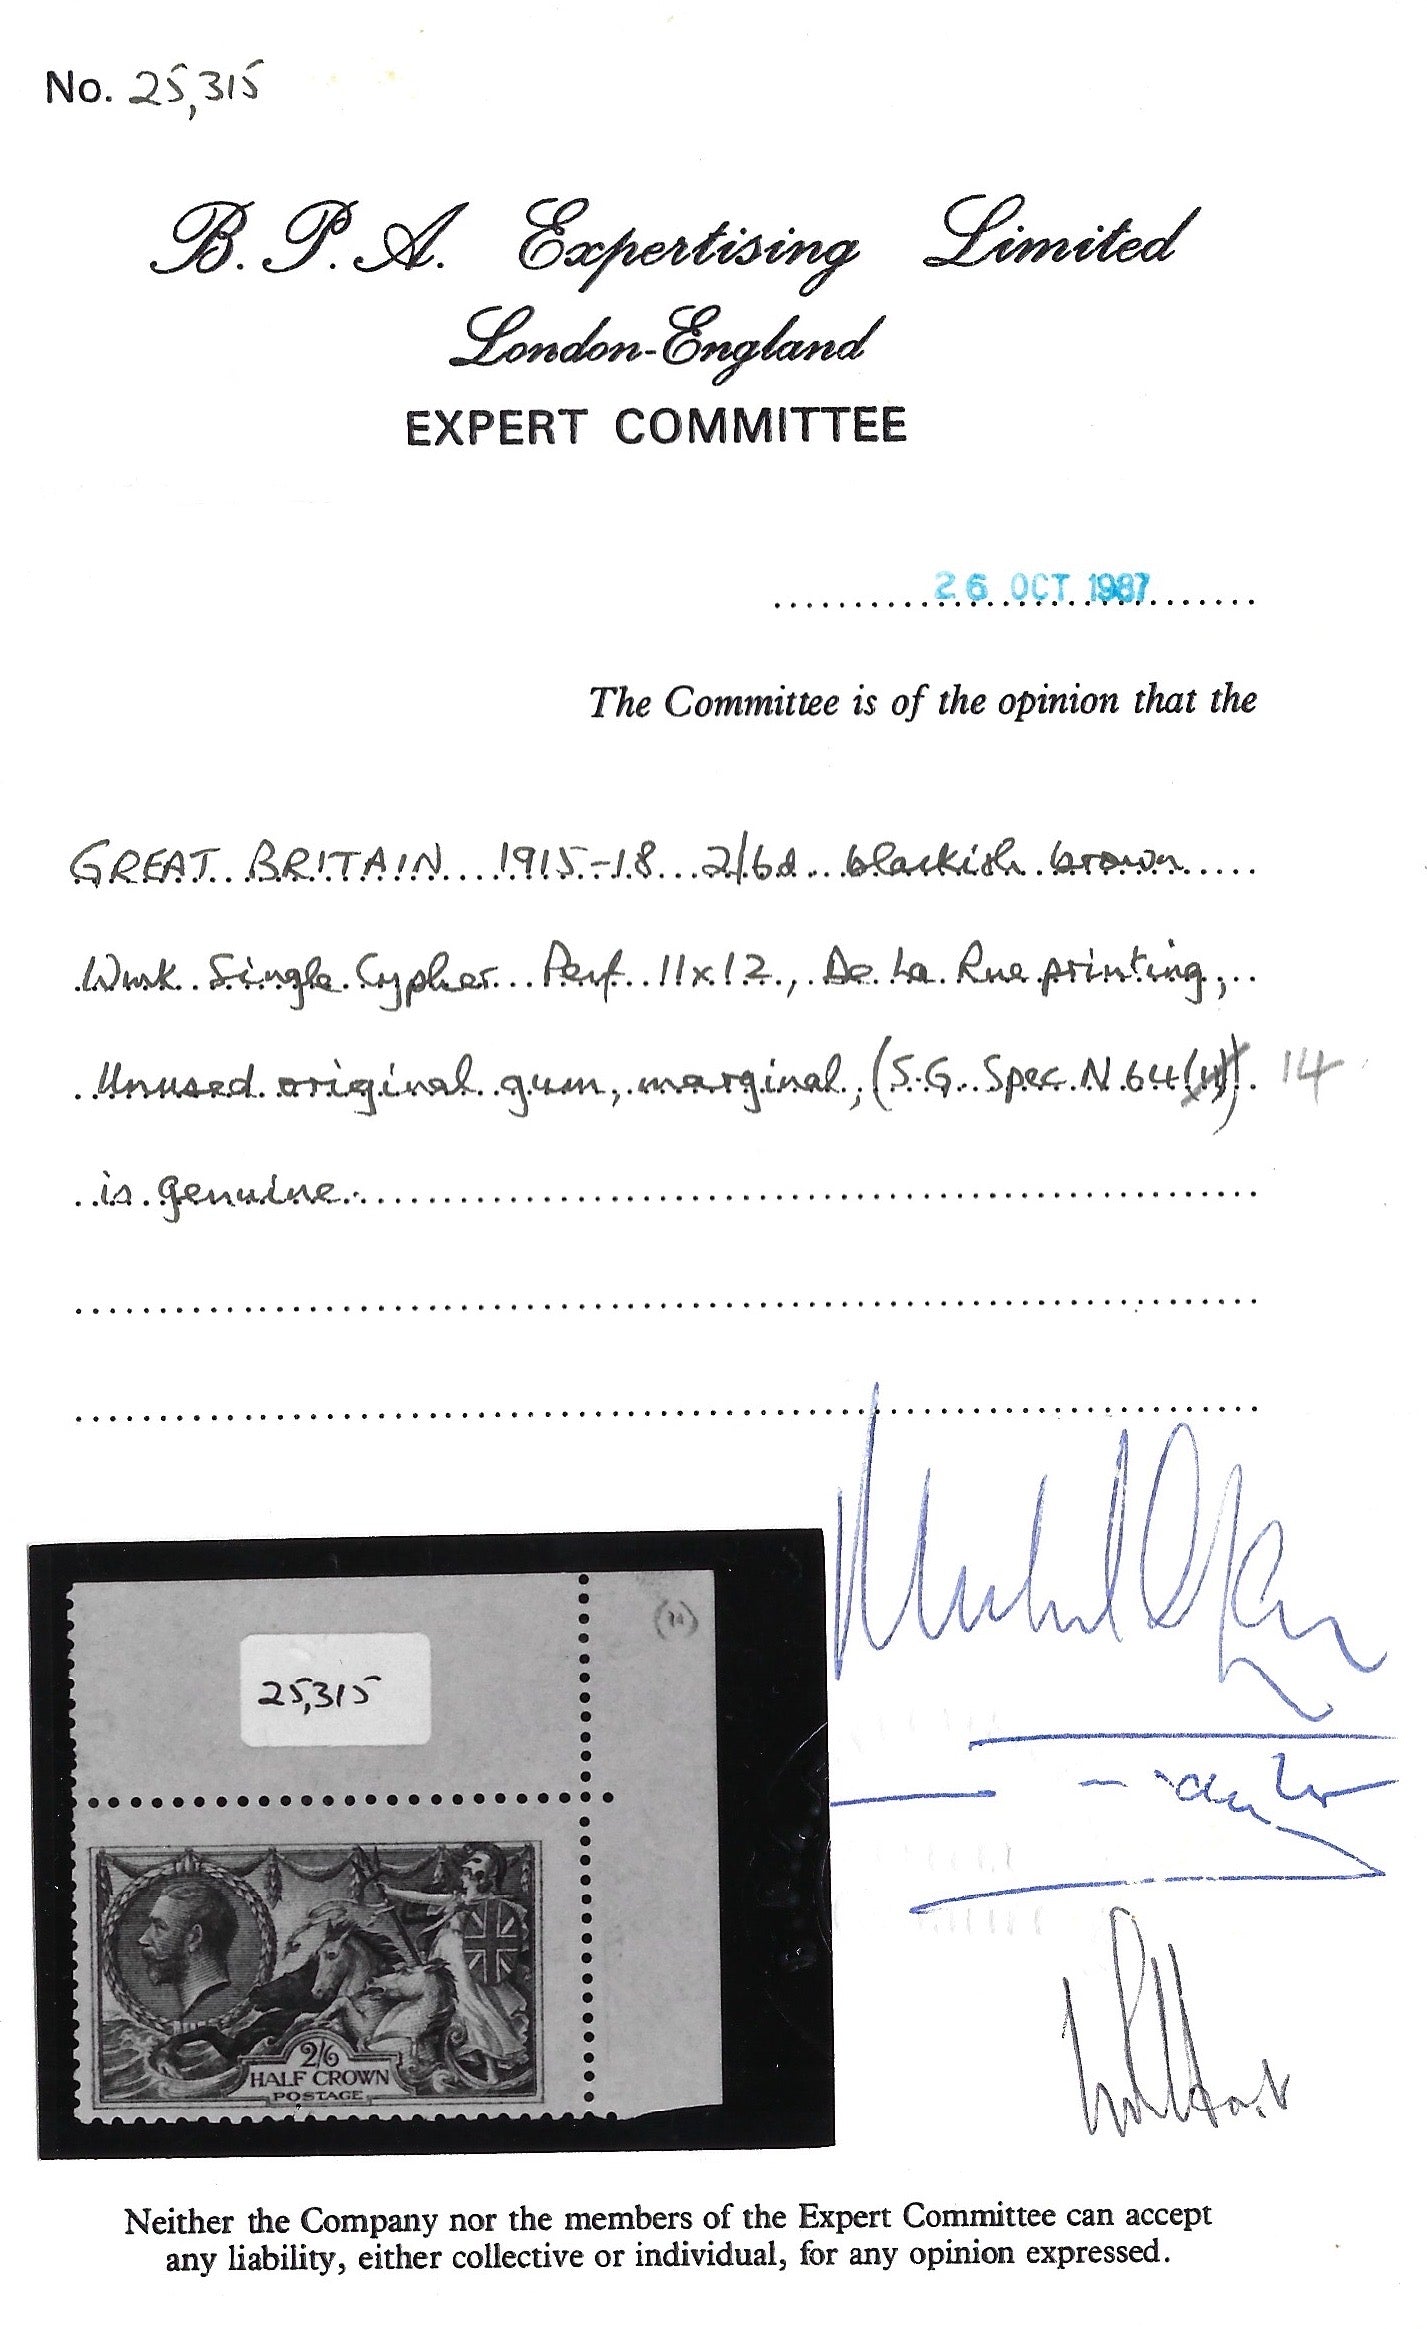 No. 25,315
B. P. A. Expertising Limited
London-England
EXPERT COMMITTEE
26 OCT 1987
The Committee is of the opinion that the
GREAT BRITAIN 1915-18 2/6d blackish brown
Wmk Single Cypher Perf 11x12, De La Rue printing,
Unused original gum, marginal, (S.G. Spec N64(11)) 14
is genuine.
25,315
2/6
HALF CROWN
POSTAGE
Neither the Company nor the members of the Expert Committee can accept
any liability, either collective or individual, for any opinion expressed.